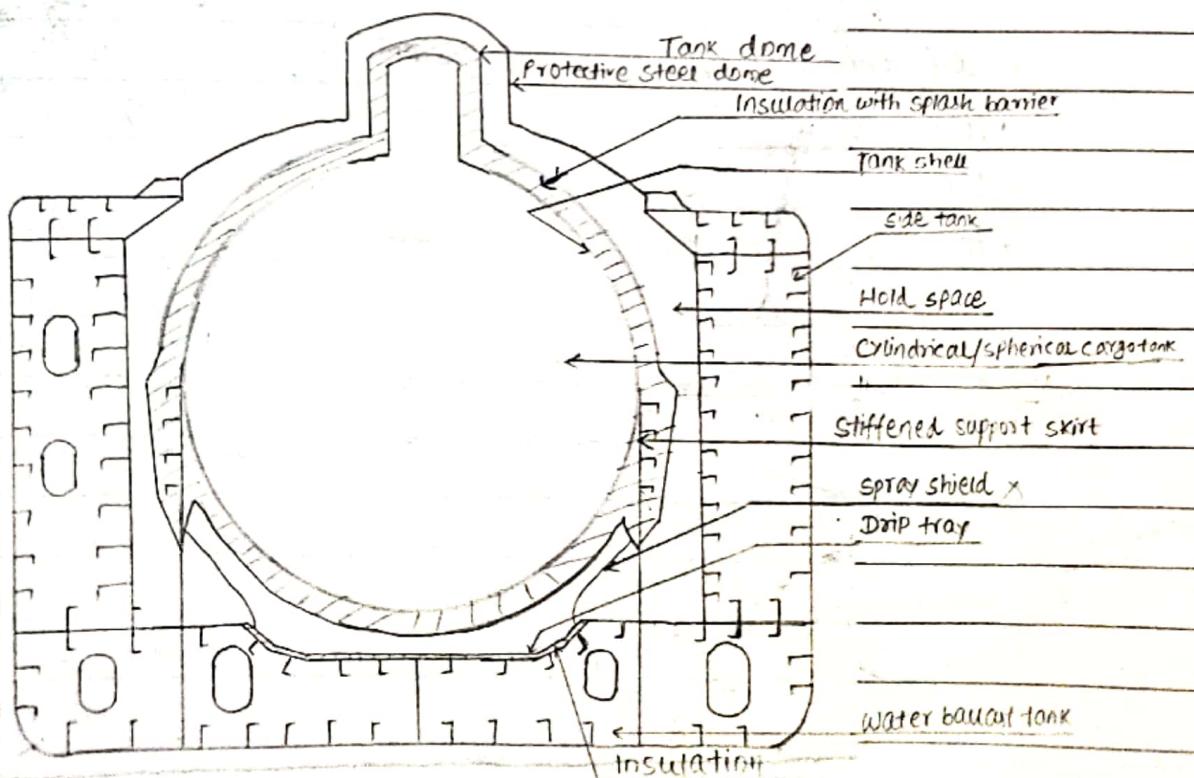 Tank dome
Protective steel dome
Insulation with splash barrier
Tank shell
side tank
Hold space
Cylindrical/spherical cargo tank
Stiffened support skirt
spray shield x
Drip tray
water ballast tank
Insulation